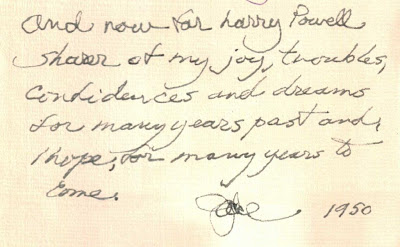 And now for harry Powell
sharer of my joy, troubles,
Confidences and dreams
for many years past and,
I hope, for many years to
come.
1950